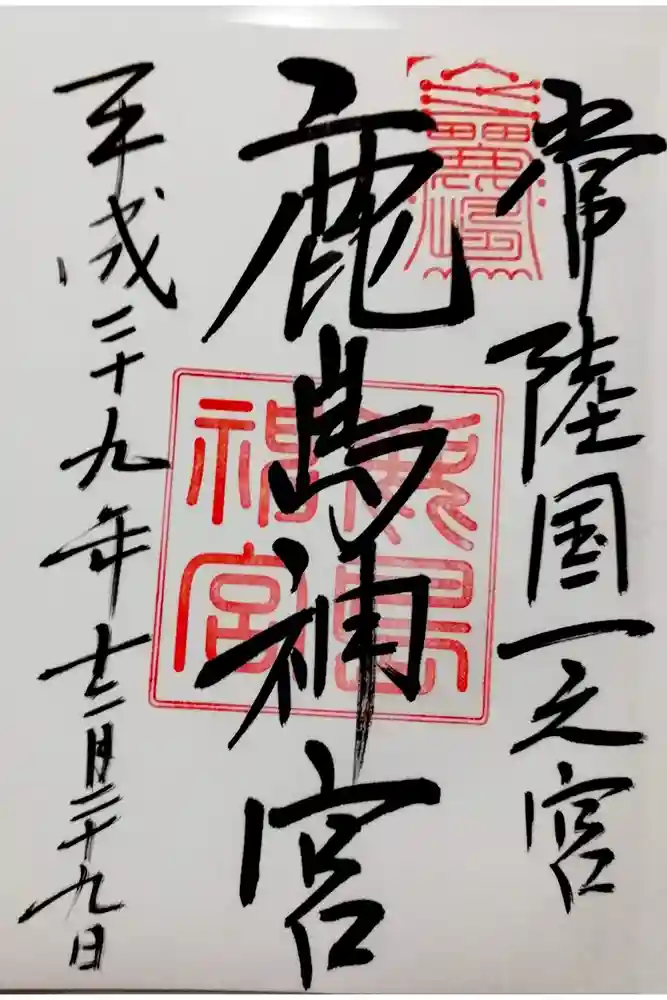 常陸国一之宮
鹿島神宮
鹿島神宮
平成二十九年十二月二十九日